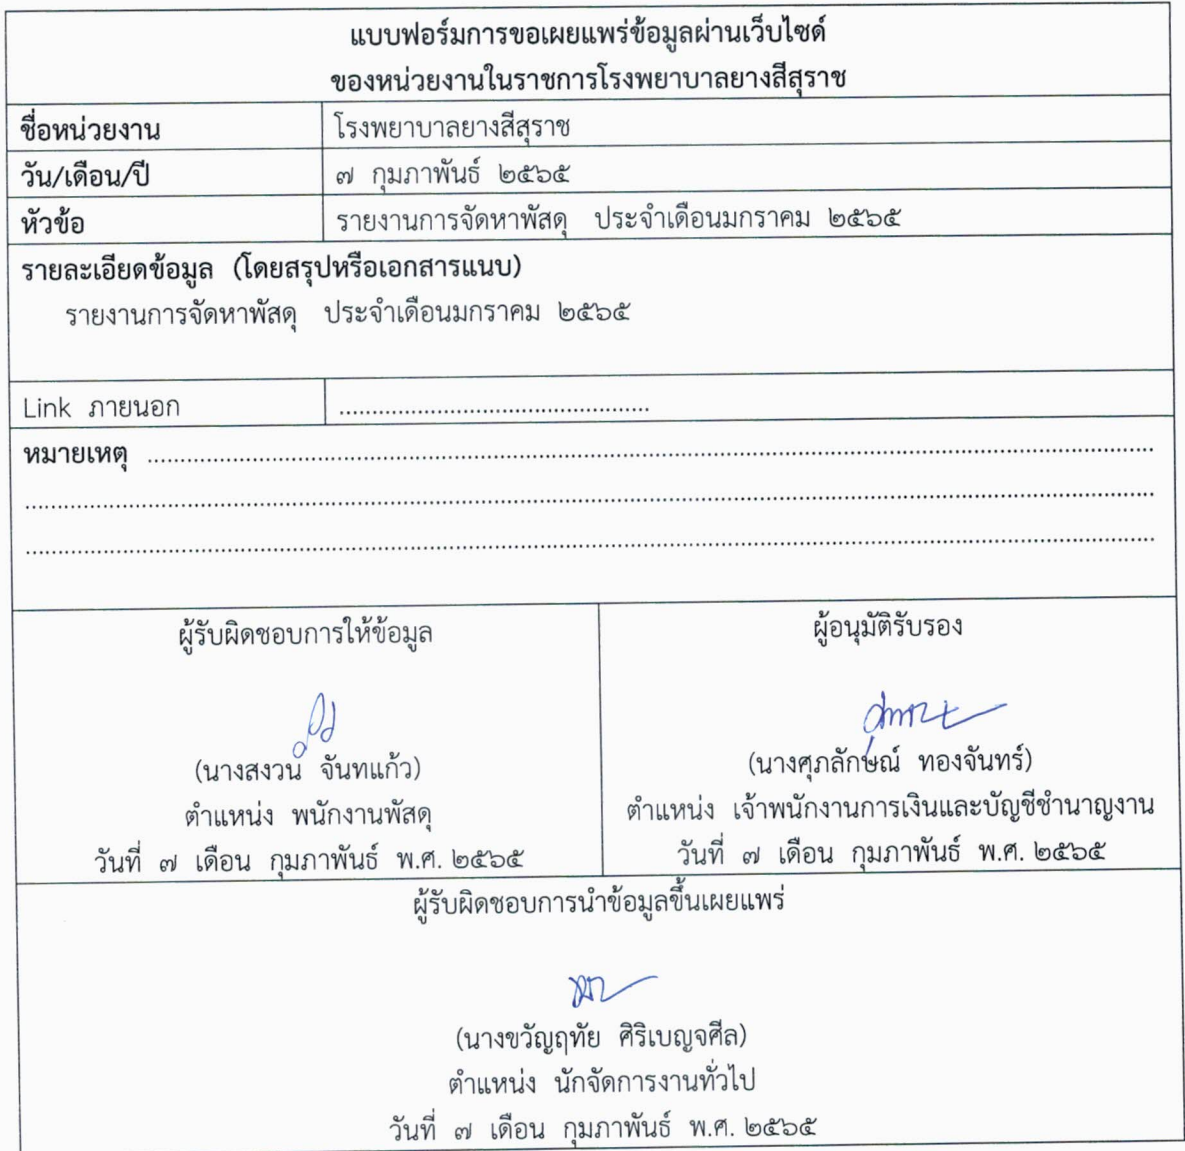 แบบฟอร์มการขอเผยแพร่ข้อมูลผ่านเว็บไซด์
ของหน่วยงานในราชการโรงพยาบาลยางสีสุราช
ชื่อหน่วยงาน โรงพยาบาลยางสีสุราช
วัน/เดือน/ปี ๗ กุมภาพันธ์ ๒๕๖๕
หัวข้อ รายงานการจัดหาพัสดุ ประจำเดือนมกราคม ๒๕๖๕
รายละเอียดข้อมูล (โดยสรุปหรือเอกสารแนบ)
รายงานการจัดหาพัสดุ ประจำเดือนมกราคม ๒๕๖๕
Link ภายนอก ................................................
หมายเหตุ ................................................................................
................................................................................
................................................................................
ผู้รับผิดชอบการให้ข้อมูล
(นางสงวน จันทแก้ว)
ตำแหน่ง พนักงานพัสดุ
วันที่ ๗ เดือน กุมภาพันธ์ พ.ศ. ๒๕๖๕
ผู้อนุมัติรับรอง
(นางศุภลักษณ์ ทองจันทร์)
ตำแหน่ง เจ้าพนักงานการเงินและบัญชีชำนาญงาน
วันที่ ๗ เดือน กุมภาพันธ์ พ.ศ. ๒๕๖๕
ผู้รับผิดชอบการนำข้อมูลขึ้นเผยแพร่
(นางขวัญฤทัย ศิริเบญจศีล)
ตำแหน่ง นักจัดการงานทั่วไป
วันที่ ๗ เดือน กุมภาพันธ์ พ.ศ. ๒๕๖๕